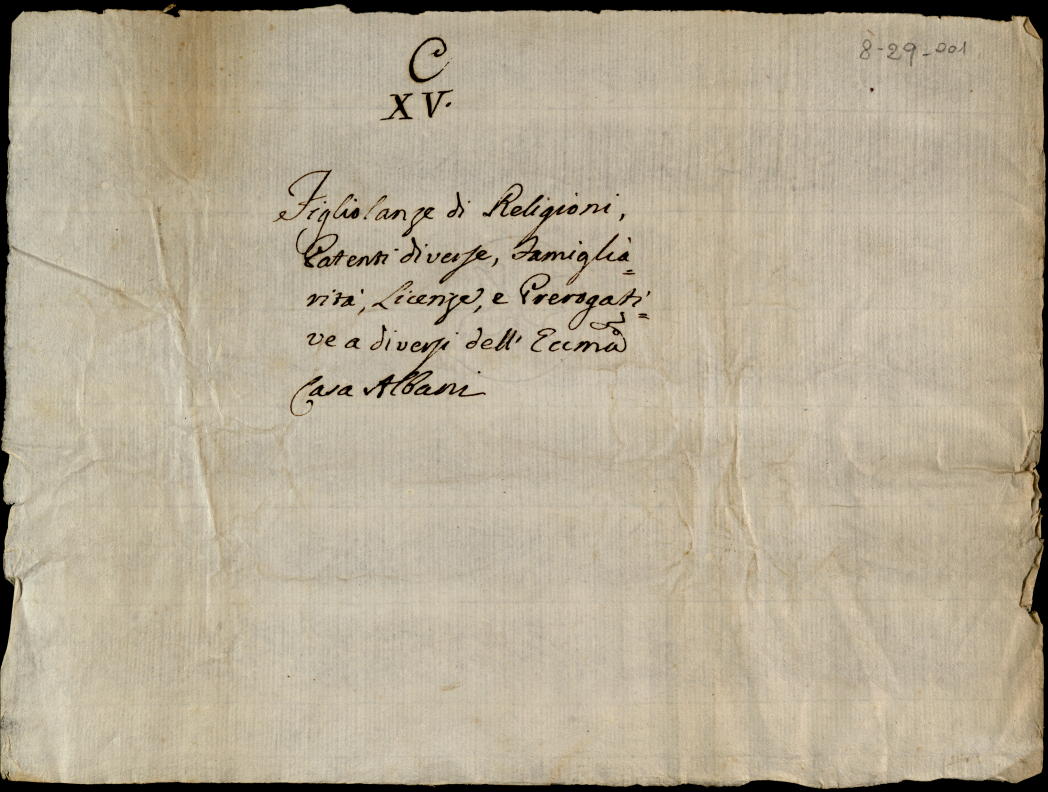 8-29-001
C
XV.
Figliolanze di Religioni,
Patenti diverse, Famiglia=
rità, Licenze, e Prerogati=
ve a diversi dell' Eccma
Casa Albani